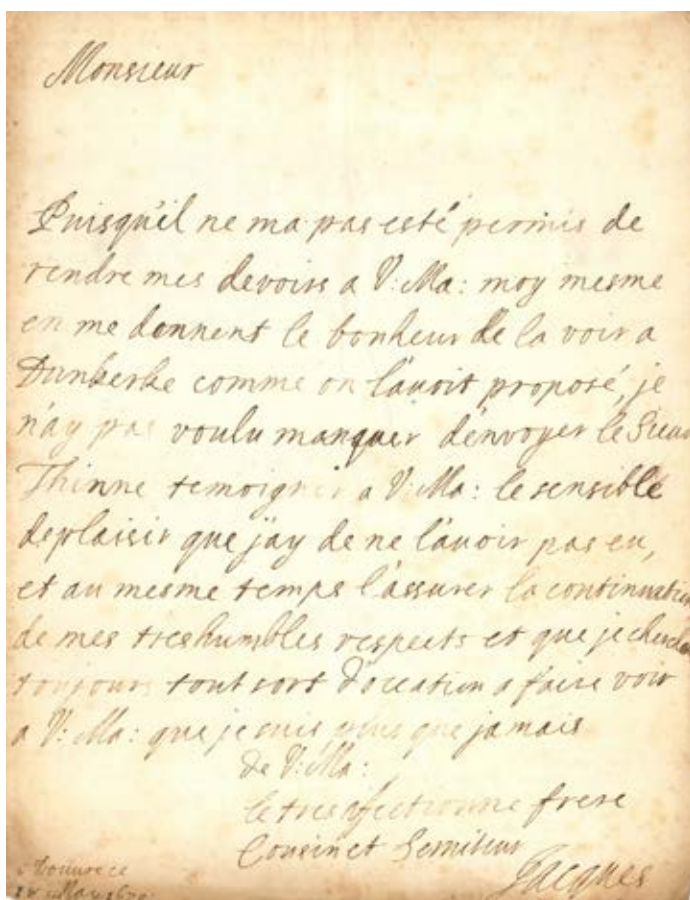 Monsieur
Puisqu'il ne ma pas esté permis de
rendre mes devoirs a V: Ma: moy mesme
en me donnent le bonheur de la voir a
Dunkerke comme on l'avoit proposé, je
n'ay pas voulu manquer d'envoyer le Sieur
Thinne temoigner a V: Ma: le sensible
deplaisir que j'ay de ne l'avoir pas eu,
et au mesme temps l'assurer la continuation
de mes treshumbles respects et que je
toujours tout sort d'occation a faire voir
a V: Ma: que je suis plus que jamais
de V: Ma:
le tres afectionne frere
Cousin et Serviteur
Jacques
May